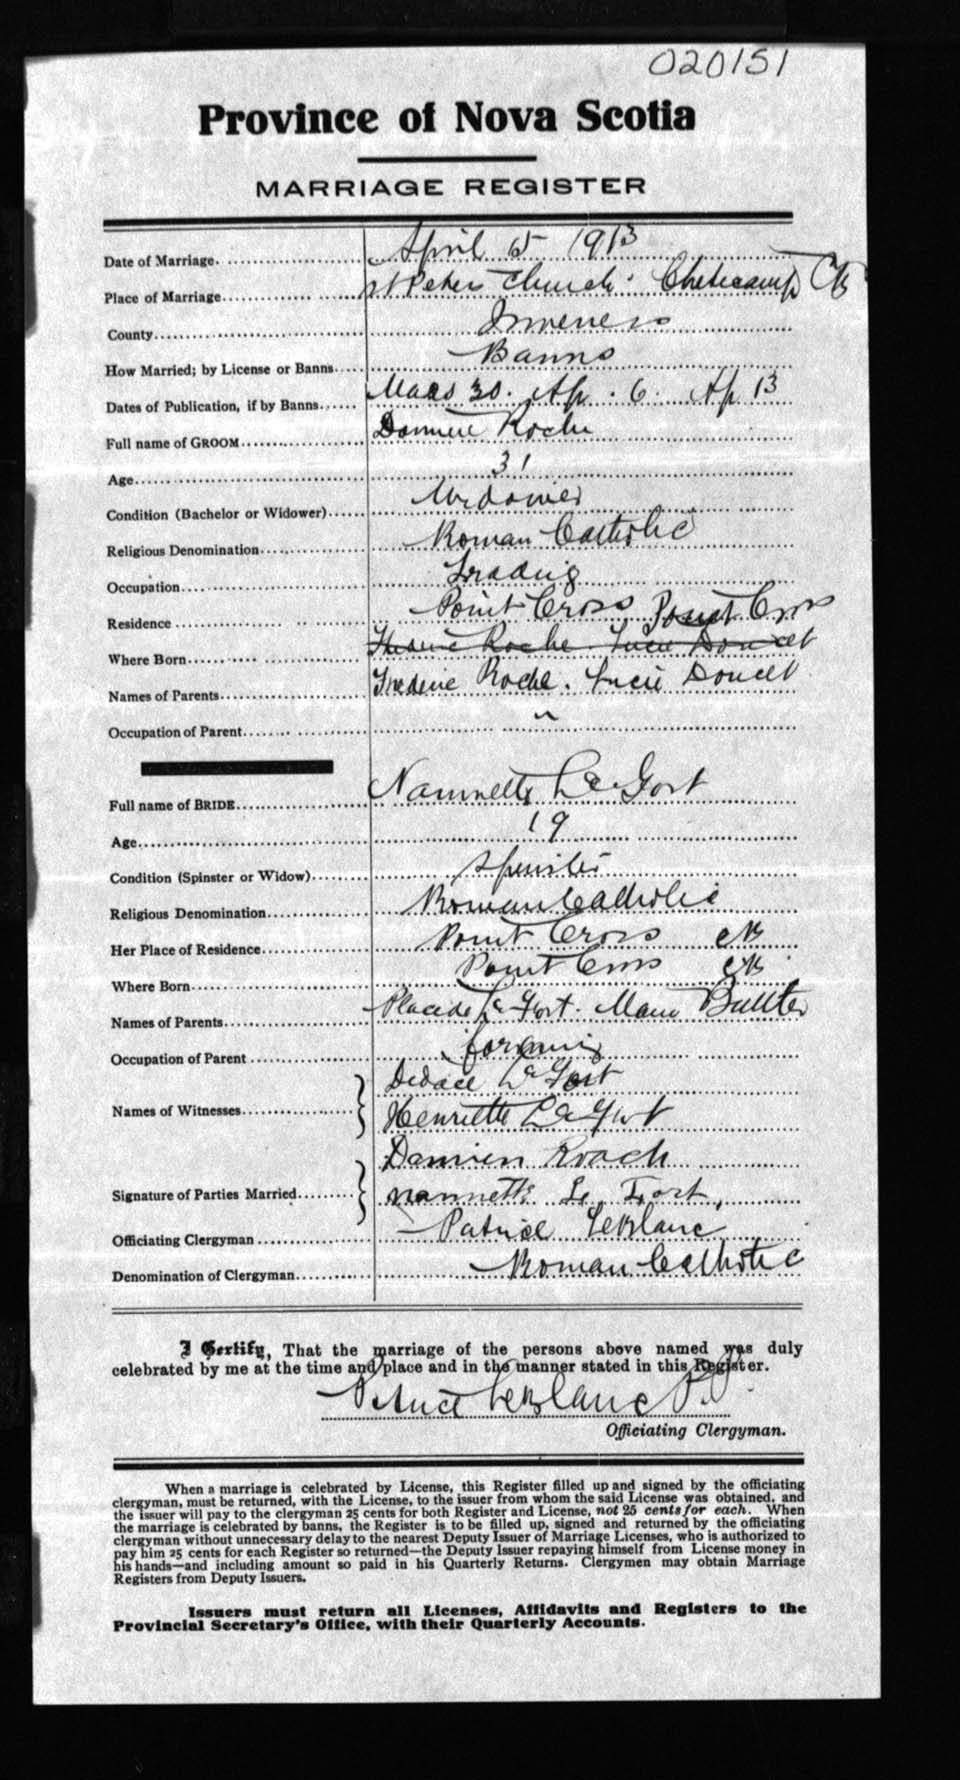 020151
Province of Nova Scotia
MARRIAGE REGISTER
Date of Marriage. April 15 1913
Place of Marriage St Peters Church. Cheticamp CB
County Inverness
How Married; by License or Banns Banns
Dates of Publication, if by Banns Mars 30. Ap. 6. Ap 13
Full name of GROOM Damien Roche
Age 31
Condition (Bachelor or Widower) Widower
Religious Denomination Roman Catholic
Occupation Trading
Residence Point Cross Point Cross
Where Born Frederic Roche Lucie Doucet
Names of Parents Frederic Roche. Lucie Doucet
Occupation of Parent "
Full name of BRIDE Nannette LeFort
Age 19
Condition (Spinster or Widow) Spinster
Religious Denomination Roman Catholic
Her Place of Residence Point Cross CB
Where Born Point Cross CB
Names of Parents Placide LeFort. Marie
Occupation of Parent farming
Names of Witnesses Didace LeFort
Henriette LeFort
Signature of Parties Married Damien Roach
Nannette Le Fort,
Officiating Clergyman Patrice LeBlanc
Denomination of Clergyman Roman Catholic
I Certify, That the marriage of the persons above named was duly
celebrated by me at the time and place and in the manner stated in this Register.
Patrice LeBlanc P.P.
Officiating Clergyman.
When a marriage is celebrated by License, this Register filled up and signed by the officiating
clergyman, must be returned, with the License, to the issuer from whom the said License was obtained, and
the issuer will pay to the clergyman 25 cents for both Register and License, not 25 cents for each. When
the marriage is celebrated by banns, the Register is to be filled up, signed and returned by the officiating
clergyman without unnecessary delay to the nearest Deputy Issuer of Marriage Licenses, who is authorized to
pay him 25 cents for each Register so returned—the Deputy Issuer repaying himself from License money in
his hands—and including amount so paid in his Quarterly Returns. Clergymen may obtain Marriage
Registers from Deputy Issuers.
Issuers must return all Licenses, Affidavits and Registers to the
Provincial Secretary's Office, with their Quarterly Accounts.